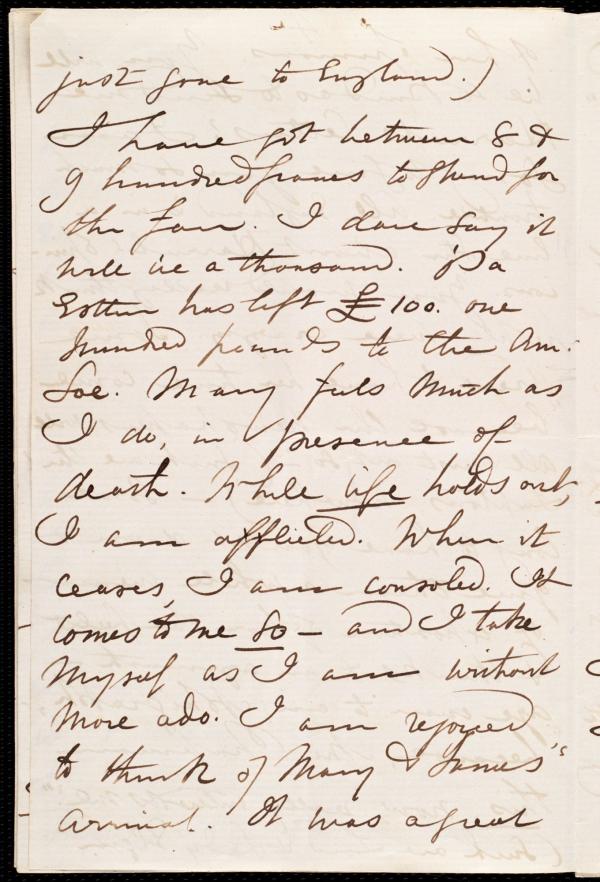 just gone to England.)
I have got between 8 &
9 hundred francs to spend for
the Fair. I dare say it
will be a thousand. Pa
Estlin has left £100. one
hundred pounds to the Am.
Soc. Mary feels much as
I do, in presence of
death. While life holds out,
I am afflicted. When it
ceases, I am consoled. It
comes to me so — and I take
myself as I am without
more ado. I am rejoiced
to think of Mary & James'
arrival. It was a great